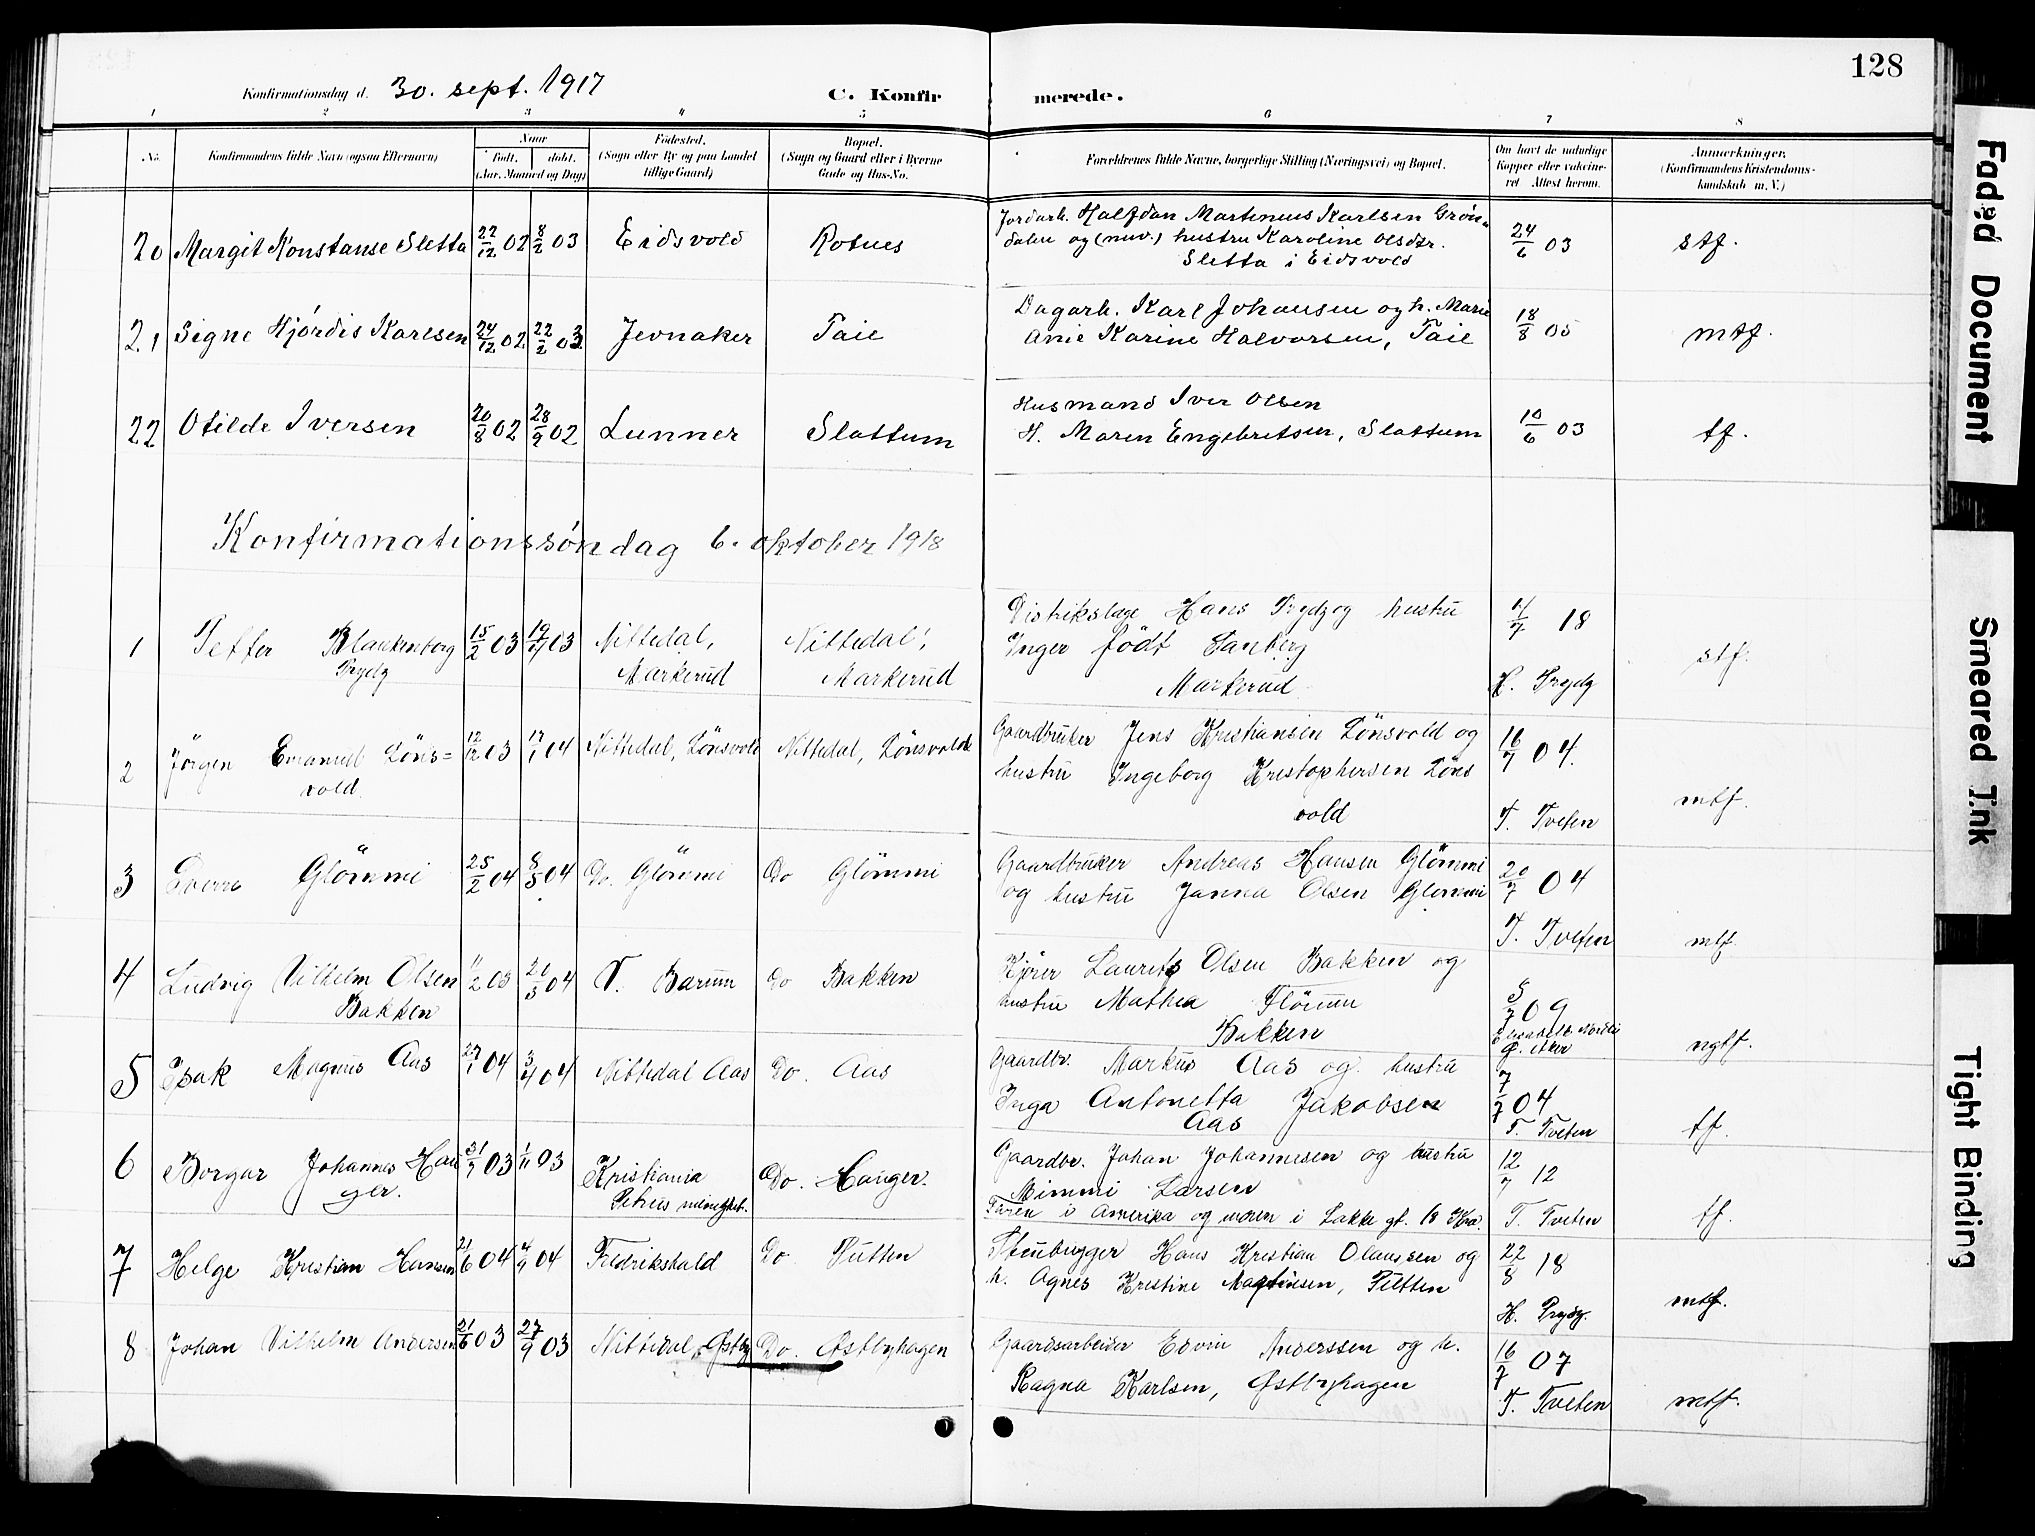 128
Konfirmationsdag d. 30. sept. 1917
C. Konfirmerede.
1 2 3 4 5 6 7 8
No. Konfirmandens fulde Navn (ogsaa Efternavn) Naar Født. døbt. (Aar, Maaned og Dag) Fødested. (Sogn eller By og paa Landet tillige Gaard) Bopæl. (Sogn og Gaard eller i Byerne Gade og Hus-No. Forældrenes fulde Navne, borgerlige Stilling (Næringsvei) og Bopæl. Om havt de naturlige Kopper eller vakcineret Attest herom. Anmærkninger, (Konfirmandens Kristendomskundskab m. V.)
20 Margit Konstanse Sletta 22/12 02 8/2 03 Eidsvold Rotnes Jordarb. Halfdan Martinius Karlsen Grøn-
dalen og (nuv.) hustru Karoline Olsdtr. 24/6 03 stf.
Sletta i Eidsvold
21 Signe Hjørdis Karlsen 24/12 02 22/2 03 Jevnaker Taie Dagarb. Karl Johansen og h. Marie
Anie Karine Halvorsen, Taie 18/8 05 mtf.
22 Otilde Iversen 20/8 02 28/9 02 Lunner Slattum Husmand Iver Olsen
H. Maren Engebretsen, Slattum 10/6 03 tf.
Konfirmationssøndag 6. oktober 1918
1 Petter Blankenborg Prydz 15/2 03 19/4 03 Nittedal, Markerud Nittedal, Markerud Distrikslæge Hans Prydz og hustru
Inger født Sanberg
Markerud 4/7 18 H. Prydz stf.
2 Jørgen Emanuel Lønsvold 12/12 03 17/1 04 Nittedal, Lønsvold Nittedal, Lønsvold Gaardbruker Jens Kristiansen Lønsvold og
hustru Ingeborg Kristophersen Lønsvold 16/7 04. T. Tveten mtf.
3 Sverre Glömmi 25/2 04 8/5 04 Do. Glömmi Do Glömmi Gaardbruker Andreas Hansen Glömmi
og hustru Janna Olsen Glömmi 20/7 04 T. Tveten mtf.
4 Ludvig Vilhelm Olsen Bakken 11/2 03 21/5 04 V. Barum Do Bakken Kjører Laurits Olsen Bakken og
hustru Mathea
Bakken 5/7 09 ngtf.
5 Isak Magnus Aas 27/1 04 3/4 04 Nittedal Aas Do. Aas Gaardbr. Markus Aas og hustru
Inga Antonetta Jakobsen
Aas 7/7 04 T. Tveten tf.
6 Borgar Johannes Hauger. 31/7 03 1/11 03 Kristiania Petrus menighet. Do. Hauger. Gaardbr. Johan Johannesen og hustru
Mimmi Larsen
Faren i Amerika og moren i Lakke gt. 18 Kra. 12/7 12 T. Tveten tf.
7 Helge Kristian Hansen 21/6 04 4/9 04 Fredrikshald Do Stenhugger Hans Kristian Olaussen og
h. Agnes Kristine Martinsen, 22/8 18 H. Prydz. mtf.
8 Johan Vilhelm Andersen 21/6 03 27/9 03 Nittedal, Østby Do. Østbyhagen Gaardsarbeider Edvin Anderssen og h.
Ragna Karlsen, Østbyhagen 16/7 07 T. Tveten mtf.
Faded Document
Smeared Ink
Tight Binding